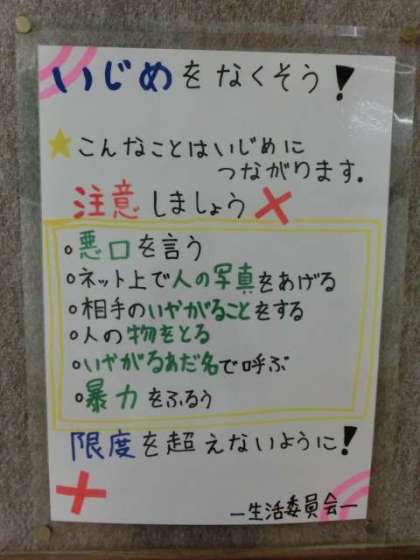 いじめをなくそう!
★こんなことはいじめに
つながります.
注意しましょう×
○悪口を言う
○ネット上で人の写真をあげる
○相手のいやがることをする
○人の物をとる
○いやがるあだ名で呼ぶ
○暴力をふるう
限度を超えないように!
ー生活委員会ー